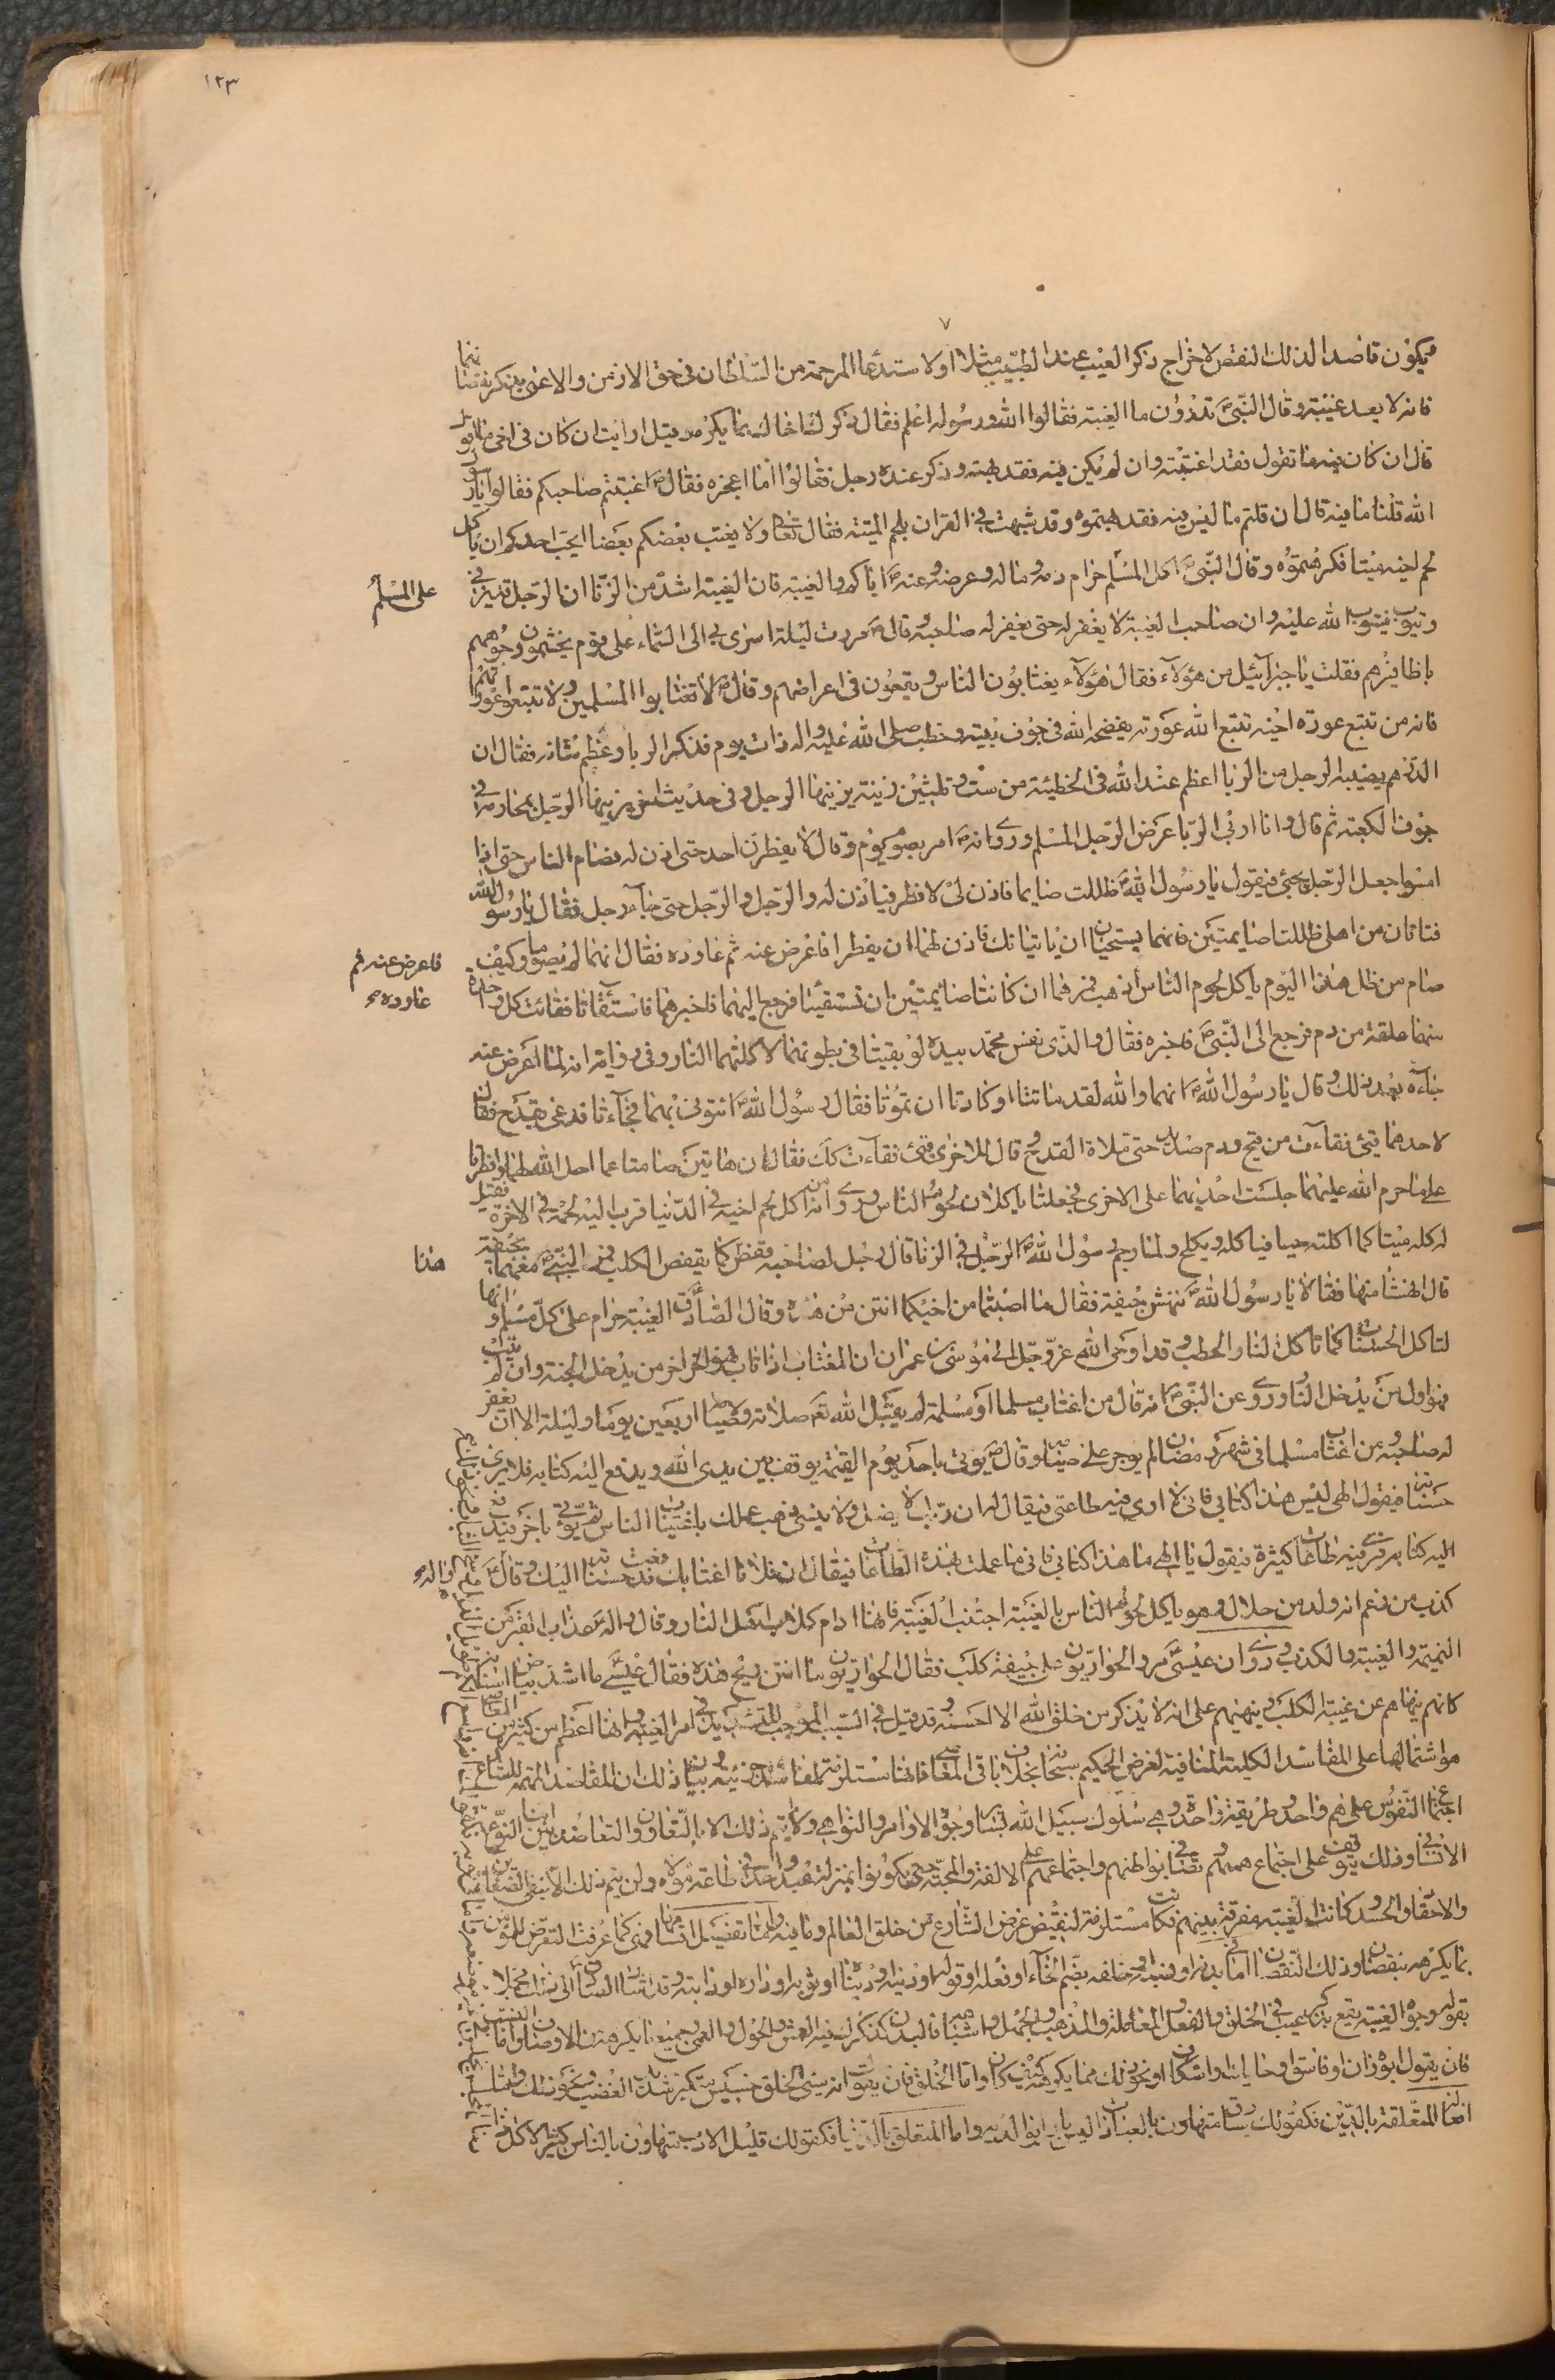 ١٢٣
٧
فيكون قاصدا لذلك النقص لاخراج ذكر العيب عند الطبيب مثلا او لاستدعاء المرحمة من السلطان فى حق الازمن والاعمى بذكر نقصانهما
فانه لا يعد غيبة وقال النبى ص تدرون ما الغيبة فقالوا الله ورسوله اعلم فقال ذكرك اخاك بما يكره قيل ارايت ان كان فى اخى ما اقول
قال ان كان فيه ما تقول فقد اغتبته وان لم يكن فيه فقد بهته وذكر عنده رجل فقالوا ما اعجزه فقال ص اغتبتم صاحبكم فقالوا يا رسول
الله قلنا ما فيه قال ان قلتم ما ليس فيه فقد بهتموه وقد شبهت فى القران بلحم الميتة فقال تعالى ولا يغتب بعضكم بعضا ايحب احدكم ان ياكل
لحم اخيه ميتا فكرهتموه وقال النبى ص كل المسلم حرام دمه وماله وعرضه وعنه ص اياكم والغيبة فان الغيبة اشد من الزنا ان الرجل قد يزنى
على المسلم
ويتوب فيتوب الله عليه وان صاحب الغيبة لا يغفر له حتى يغفر له صاحبه وقال ص مررت ليلة اسرى بى الى السماء على قوم يخمشون وجوههم
باظافيرهم فقلت يا جبرآئيل من هؤلآء فقال هؤلآء يغتابون الناس ويقعون فى اعراضهم وقال ص لا تغتابوا المسلمين ولا تتبعوا عوراتهم
فانه من تتبع عورة اخيه تتبع الله عورته يفضحه الله فى جوف بيته وخطب صلى الله عليه واله ذات يوم فذكر الربا وعظم شانه فقال ان
الدرهم يصيبه الرجل من الربا اعظم عند الله فى الخطيئة من ست وثلثين زنية يزنيها الرجل وفى حديث اخر يزنيها الرجل بمحارمه فى
جوف الكعبة ثم قال وانا اربى الربا عرض الرجل المسلم وروى انه ص امر بصوم يوم وقال لا يفطرن احد حتى اذن له فصام الناس حتى اذا
امسوا جعل الرجل يجئ فيقول يا رسول الله ص ظللت صايما فاذن لى لافطر فياذن له والرجل والرجل حتى جآء رجل فقال يا رسول الله
فتاتان من اهلى ظللتا صايمتين فانهما يستحيان ان ياتيانك فاذن لهما ان يفطرا فاعرض عنه ثم عاوده فقال انهما لم يصوما وكيف
فاعرض عنه ثم
عاوده
صام من ظل هذا اليوم ياكل لحوم الناس اذهب فمرهما ان كانتا صايمتين ان تستقيئا فرجع اليهما فاخبرهما فاستقآتا فقائت كل واحدة
منهما علقة من دم فرجع الى النبى ص فاخبره فقال والذى نفس محمد بيده لو بقيتا فى بطونهما لاكلتهما النار وفى رواية انه لما اعرض عنه
جآءه بعد ذلك وقال يا رسول الله ص انهما والله لقد ماتتا او كادتا ان تموتا فقال رسول الله ص ائتونى بهما فجآءتا فدعى بقدح فقال
لاحدهما قيئ فقاءت من قيح ودم صديد حتى ملاة القدح وقال للاخرى قيئ فقاءت كك فقال ان هاتين صامتا عما احل الله لهما وافطرتا
على ما حرم الله عليهما جلست احديهما على الاخرى فجعلتا ياكلان لحوم الناس وروى انه من اكل لحم اخيه فى الدنيا قرب اليه لحمه فى الاخرة فقيل
له كله ميتا كما اكلته حيا فياكله ويكلح ولما رجم رسول الله ص الرجل فى الزنا قال رجل لصاحبه قعص كما يقعص الكلب فمر النبى ص معهما بجيفة
هذا
قال انهشا منها فقالا يا رسول الله ص ننهش جيفة فقال ما اصبتما من اخيكما انتن من هذه وقال الصادق ع الغيبة حرام على كل مسلم وانها
لتاكل الحسنات كما تاكل النار الحطب وقد اوحى الله عز وجل الى موسى بن عمران ان المغتاب اذا تاب فهو اخر من يدخل الجنة وان لم يتب
فهو اول من يدخل النار وروى عن النبى ص انه قال من اغتاب مسلما او مسلمة لم يقبل الله تع صلاته ولا صيامه اربعين يوما وليلة الا ان يغفر
له صاحبه ومن اغتاب مسلما فى شهر رمضان لم يوجر على صيامه وقال ص يؤتى باحد يوم القيمة يوقف بين يدى الله ويدفع اليه كتابه فلا يرى
حسناته فيقول الهى ليس هذا كتابى فانى لا ارى فيه طاعتى فيقال له ان ربك لا يضل ولا ينسى ذهب عملك باغتياب الناس ثم يؤتى باخر فيدفع
اليه كتابه فيرى فيه طاعات كثيرة فيقول يا الهى ما هذا كتابى فانى ما عملت بهذه الطاعات فيقال ان فلانا اغتابك فدفعت حسناته اليك وقال ص
كذب من زعم انه ولد من حلال وهو ياكل لحوم الناس بالغيبة اجتنب الغيبة فانها ادام كلاب اهل النار وقال واله عذاب القبر من
النميمة والغيبة والكذب وروى ان عيسى ع مر والحواريون على جيفة كلب فقال الحواريون ما انتن ريح هذه فقال عيسى ما اشد بياض اسنانه
كانه ينهاهم عن غيبة الكلب وينبههم على انه لا يذكر من خلق الله الا احسنه وقد قيل فى السبب الموجب للتشديد فى امر الغيبة وجعلها اعظم من كثير من المعاصى
هو اشتمالها على المفاسد الكلية المنافية لغرض الحكيم سبحانه بخلاف باقى المعاصى فانها مستلزمة لمفاسد جزئية وبيان ذلك ان المقاصد المهمة للشارع
اجتماع النفوس على هم واحد وطريقة واحدة وهى سلوك سبيل الله بساير وجوه الاوامر والنواهى ولا يتم ذلك الا بالتعاون والتعاضد بين ابناء النوع
الانسانى وذلك يتوقف على اجتماع هممهم وتصافى بواطنهم واجتماعهم على الالفة والمحبة حتى يكونوا بمنزلة عبد واحد فى طاعة مولاه ولن يتم ذلك الا بنفى الضغاين
والاحقاد والحسد وكانت الغيبة مفرقة بينهم فكانت مستلزمة لنقيض غرض الشارع من خلق العالم
بما يكرهه بنقصان وذلك النقصان اما فى بدنه او نسبه او خلقه بضم الخآء او فعله او قوله او دينه او دنياه او ثوبه او داره او دابته
بقوله وجوه الغيبة يقع بذكر عيب فى الخلق والفعل والمعاملة والمذهب والجهل واشباهه فالبدن كذكرك فيه العمش والحول والعمى وجميع ما يكرهه من الاوصاف واما النسب
فان يقول ابوه زان او فاسق او حايك او اسكاف او نحو ذلك مما يكرهه كيف كان واما الخلق فان يقول انه سيئ الخلق خسيس متكبر شديد الغضب ونحو ذلك واما
افعاله المتعلقة بالدين فكقولك سارق متهاون بالعبادات ليس بارا بوالديه واما المتعلق بالدنيا فكقولك قليل الادب متهاون بالناس كثير الاكل